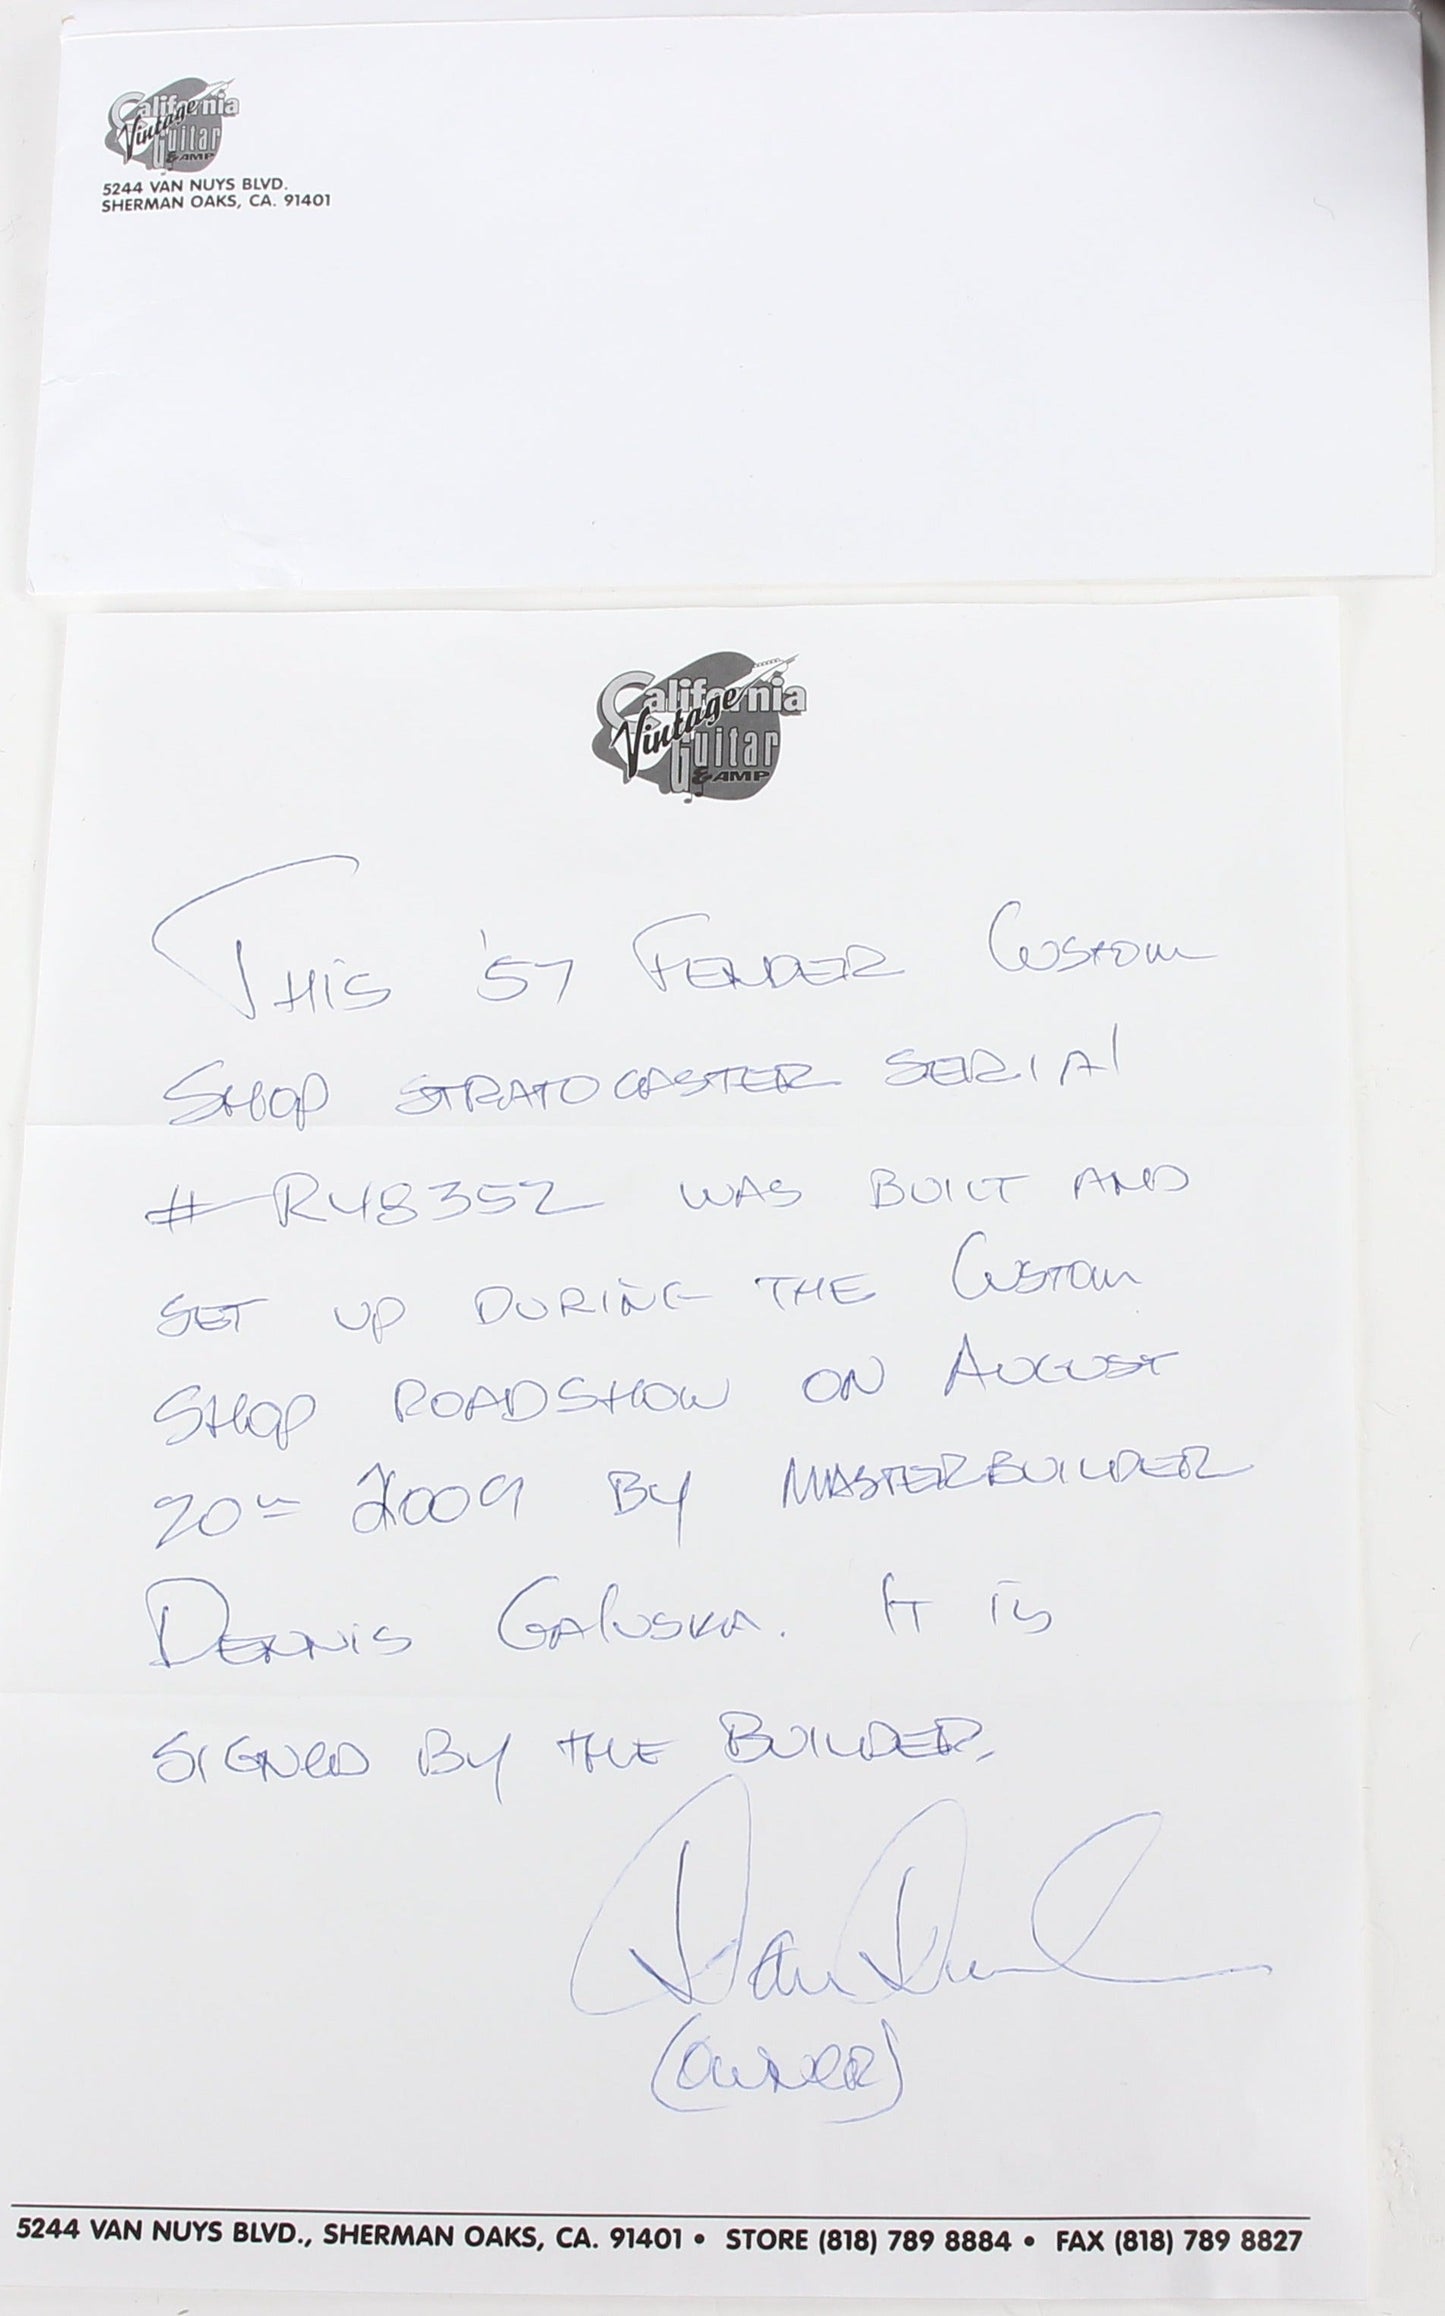 California
Vintage
Guitar
& AMP
5244 VAN NUYS BLVD.
SHERMAN OAKS, CA. 91401
California
Vintage
Guitar
& AMP
THIS '57 FENDER CUSTOM
SHOP STRATOCASTER SERIAL
# R48352 WAS BUILT AND
SET UP DURING THE CUSTOM
SHOP ROADSHOW ON AUGUST
20TH 2009 BY MASTERBUILDER
DENNIS GALUSKA. IT IS
SIGNED BY THE BUILDER.
(OWNER)
5244 VAN NUYS BLVD., SHERMAN OAKS, CA. 91401 • STORE (818) 789 8884 • FAX (818) 789 8827